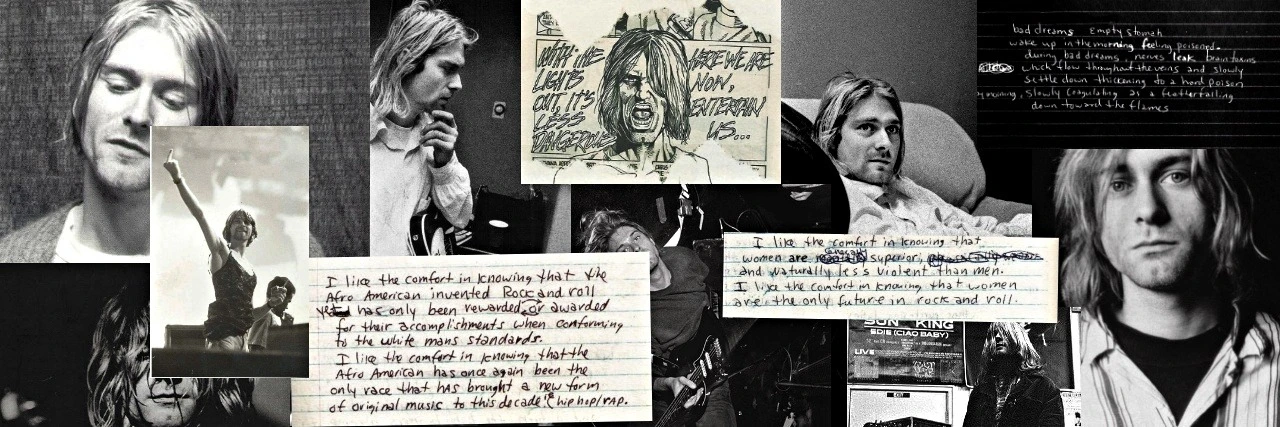 WITH THE
LIGHTS
OUT, IT'S
LESS
DANGEROUS
HERE WE ARE
NOW,
ENTERTAIN
US...
bad dreams Empty stomach
wake up in the morning feeling poisoned.
during bad dreams, nerves leak brain toxins
which flow throughout the veins and slowly
settle down thickening to a hard poison
slowly coagulating as a feather falling
down toward the flames
I like the comfort in knowing that
women are generally superior,
and naturally less violent than men.
I like the comfort in knowing that women
are the only future in rock and roll.
I like the comfort in knowing that the
Afro American invented Rock and roll
yet has only been rewarded or awarded
for their accomplishments when conforming
to the white mans standards.
I like the comfort in knowing that the
Afro American has once again been the
only race that has brought a new form
of original music to this decade (hip hop/rap.
SON KING
EDIE (CIAO BABY)
LIVE